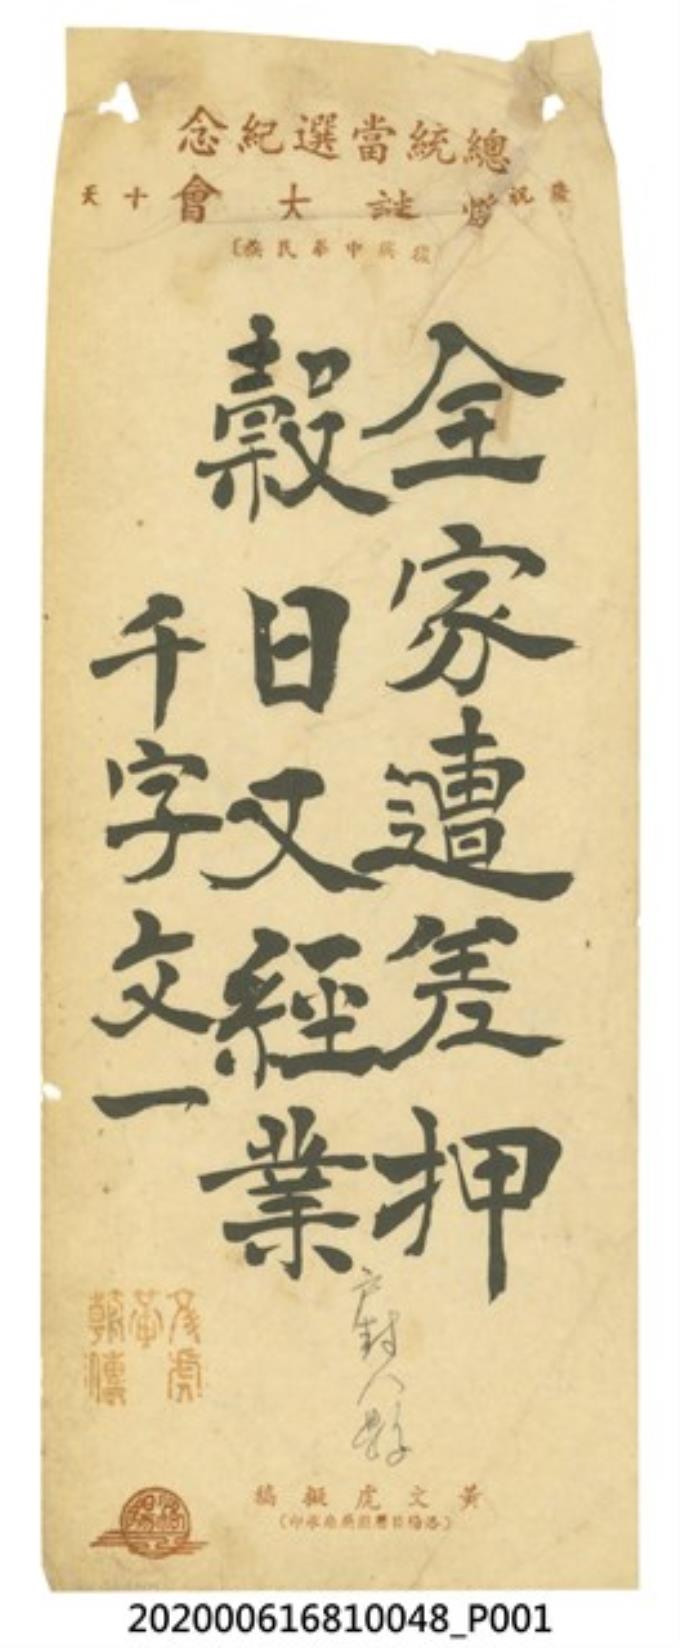 總統當選紀念
慶祝燈謎大會十天
(復興中華民族)
全家遭差押
穀日又經業
千字文一
户封八縣
黃文虎擬稿
202000616810048_P001